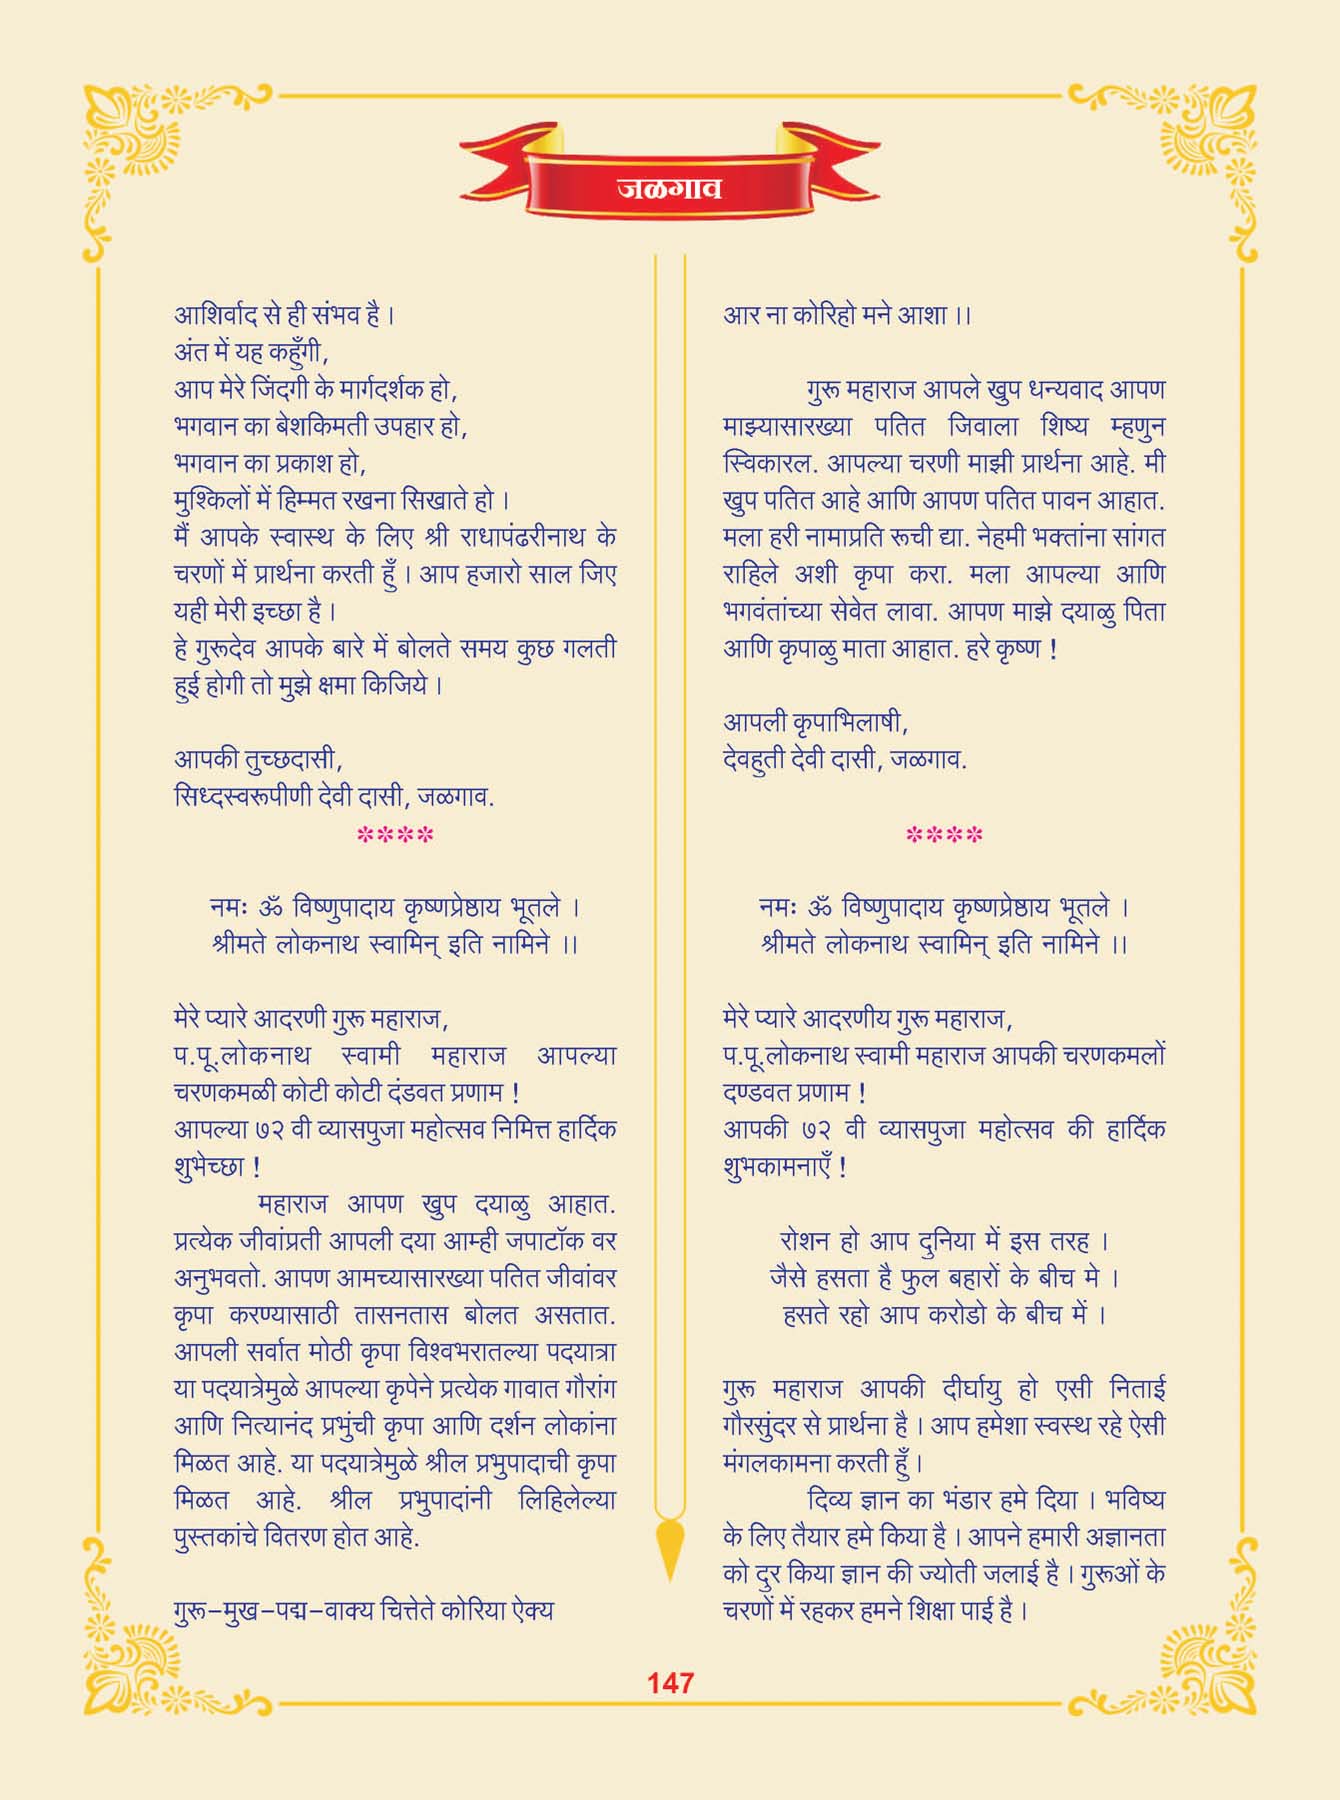 जळगाव
आशिर्वाद से ही संभव है ।
अंत में यह कहुँगी,
आप मेरे जिंदगी के मार्गदर्शक हो,
भगवान का बेशकिमती उपहार हो,
भगवान का प्रकाश हो,
मुश्किलों में हिम्मत रखना सिखाते हो ।
मैं आपके स्वास्थ के लिए श्री राधापंढरीनाथ के
चरणों में प्रार्थना करती हुँ । आप हजारो साल जिए
यही मेरी इच्छा है ।
हे गुरूदेव आपके बारे में बोलते समय कुछ गलती
हुई होगी तो मुझे क्षमा किजिये ।
आपकी तुच्छदासी,
सिध्दस्वरूपीणी देवी दासी, जळगाव.
****
नमः ॐ विष्णुपादाय कृष्णप्रेष्ठाय भूतले ।
श्रीमते लोकनाथ स्वामिन् इति नामिने ।।
मेरे प्यारे आदरणी गुरू महाराज,
प.पू.लोकनाथ स्वामी महाराज आपल्या
चरणकमळी कोटी कोटी दंडवत प्रणाम !
आपल्या ७२ वी व्यासपुजा महोत्सव निमित्त हार्दिक
शुभेच्छा !
महाराज आपण खुप दयाळु आहात.
प्रत्येक जीवांप्रती आपली दया आम्ही जपाटॉक वर
अनुभवतो. आपण आमच्यासारख्या पतित जीवांवर
कृपा करण्यासाठी तासनतास बोलत असतात.
आपली सर्वात मोठी कृपा विश्वभरातल्या पदयात्रा
या पदयात्रेमुळे आपल्या कृपेने प्रत्येक गावात गौरांग
आणि नित्यानंद प्रभुंची कृपा आणि दर्शन लोकांना
मिळत आहे. या पदयात्रेमुळे श्रील प्रभुपादाची कृपा
मिळत आहे. श्रील प्रभुपादांनी लिहिलेल्या
पुस्तकांचे वितरण होत आहे.
गुरू–मुख–पद्म–वाक्य चित्तेते कोरिया ऐक्य
आर ना कोरिहो मने आशा ।।
गुरू महाराज आपले खुप धन्यवाद आपण
माझ्यासारख्या पतित जिवाला शिष्य म्हणुन
स्विकारल. आपल्या चरणी माझी प्रार्थना आहे. मी
खुप पतित आहे आणि आपण पतित पावन आहात.
मला हरी नामाप्रति रूची द्या. नेहमी भक्तांना सांगत
राहिले अशी कृपा करा. मला आपल्या आणि
भगवंतांच्या सेवेत लावा. आपण माझे दयाळु पिता
आणि कृपाळु माता आहात. हरे कृष्ण !
आपली कृपाभिलाषी,
देवहुती देवी दासी, जळगाव.
****
नमः ॐ विष्णुपादाय कृष्णप्रेष्ठाय भूतले ।
श्रीमते लोकनाथ स्वामिन् इति नामिने ।।
मेरे प्यारे आदरणीय गुरू महाराज,
प.पू.लोकनाथ स्वामी महाराज आपकी चरणकमलों
दण्डवत प्रणाम !
आपकी ७२ वी व्यासपुजा महोत्सव की हार्दिक
शुभकामनाएँ !
रोशन हो आप दुनिया में इस तरह ।
जैसे हसता है फुल बहारों के बीच मे ।
हसते रहो आप करोडो के बीच में ।
गुरू महाराज आपकी दीर्घायु हो एसी निताई
गौरसुंदर से प्रार्थना है । आप हमेशा स्वस्थ रहे ऐसी
मंगलकामना करती हुँ ।
दिव्य ज्ञान का भंडार हमे दिया । भविष्य
के लिए तैयार हमे किया है । आपने हमारी अज्ञानता
को दुर किया ज्ञान की ज्योती जलाई है । गुरूओं के
चरणों में रहकर हमने शिक्षा पाई है ।
147